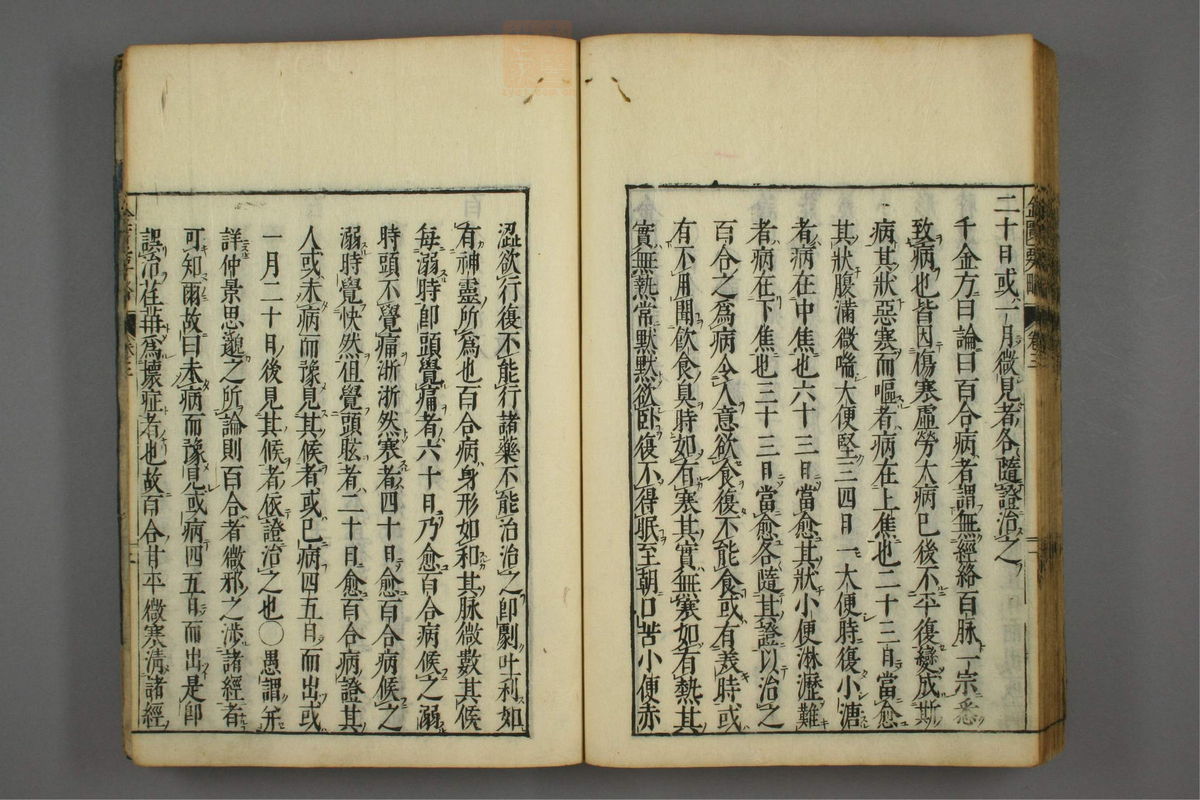 二十日或一月微見者各隨證治之
千金方曰論曰百合病者謂無經絡百脉一宗悉
致病也皆因傷寒虛勞大病已後不平復變成斯
病其狀惡寒而嘔者病在上焦也二十三日當愈
其狀腹滿微喘大便堅三四日一大便時復小溏
者病在中焦也六十三日當愈其狀小便淋瀝難
者病在下焦也三十三日當愈各隨其證以治之
百合之爲病令人意欲食復不能食或有美時或
有不用聞飲食臭時如有寒其實無寒如有熱其
實無熱常默默欲卧復不得眠至朝口苦小便赤
澁欲行復不能行諸藥不能治治之卽劇吐利如
有神靈所爲也百合病身形如和其脉微數其候
每溺時卽頭覺痛者六十日乃愈百合病候之溺
時頭不覺痛淅淅然寒者四十日愈百合病候之
溺時覺快然但覺頭眩者二十日愈百合病證其
人或未病而豫見其候者或已病四五日而出或
一月二十日後見其候者依證治之也〇愚謂并
詳仲景思邈之所論則百合者微邪之涉諸經者
可知爾故曰未病而豫見或病四五日而出是卽
誤治荏苒爲壞症者也故百合甘平微寒清諸經